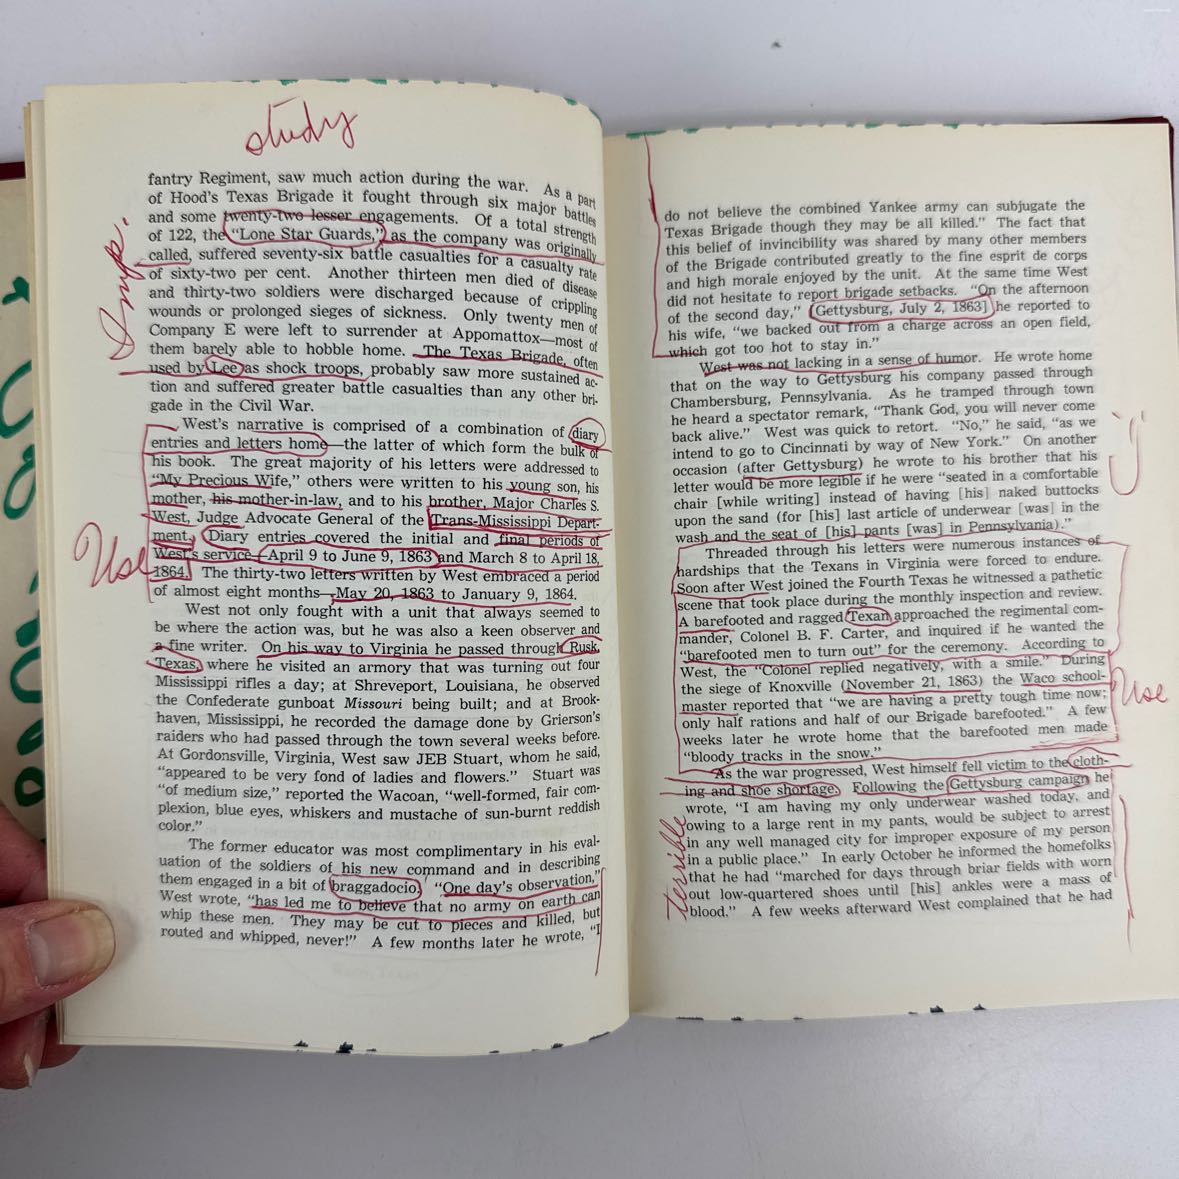 study
fantry Regiment, saw much action during the war. As a part
of Hood's Texas Brigade it fought through six major battles
and some twenty-two lesser engagements. Of a total strength
of 122, the "Lone Star Guards," as the company was originally
called, suffered seventy-six battle casualties for a casualty rate
of sixty-two per cent. Another thirteen men died of disease
and thirty-two soldiers were discharged because of crippling
wounds or prolonged sieges of sickness. Only twenty men of
Company E were left to surrender at Appomattox—most of
them barely able to hobble home. The Texas Brigade, often
used by Lee as shock troops, probably saw more sustained ac-
tion and suffered greater battle casualties than any other bri-
gade in the Civil War.
Imp.
West's narrative is comprised of a combination of diary
entries and letters home—the latter of which form the bulk of
his book. The great majority of his letters were addressed to
"My Precious Wife," others were written to his young son, his
mother, his mother-in-law, and to his brother, Major Charles S.
West, Judge Advocate General of the Trans-Mississippi Depart-
ment. Diary entries covered the initial and final periods of
West's service—April 9 to June 9, 1863 and March 8 to April 18,
1864. The thirty-two letters written by West embraced a period
of almost eight months—May 20, 1863 to January 9, 1864.
Use
West not only fought with a unit that always seemed to
be where the action was, but he was also a keen observer and
a fine writer. On his way to Virginia he passed through Rusk,
Texas, where he visited an armory that was turning out four
Mississippi rifles a day; at Shreveport, Louisiana, he observed
the Confederate gunboat Missouri being built; and at Brook-
haven, Mississippi, he recorded the damage done by Grierson's
raiders who had passed through the town several weeks before.
At Gordonsville, Virginia, West saw JEB Stuart, whom he said,
"appeared to be very fond of ladies and flowers." Stuart was
"of medium size," reported the Wacoan, "well-formed, fair com-
plexion, blue eyes, whiskers and mustache of sun-burnt reddish
color."
The former educator was most complimentary in his eval-
uation of the soldiers of his new command and in describing
them engaged in a bit of braggadocio. "One day's observation,"
West wrote, "has led me to believe that no army on earth can
whip these men. They may be cut to pieces and killed, but
routed and whipped, never!" A few months later he wrote, "I
do not believe the combined Yankee army can subjugate the
Texas Brigade though they may be all killed." The fact that
this belief of invincibility was shared by many other members
of the Brigade contributed greatly to the fine esprit de corps
and high morale enjoyed by the unit. At the same time West
did not hesitate to report brigade setbacks. "On the afternoon
of the second day," [Gettysburg, July 2, 1863] he reported to
his wife, "we backed out from a charge across an open field,
which got too hot to stay in."
West was not lacking in a sense of humor. He wrote home
that on the way to Gettysburg his company passed through
Chambersburg, Pennsylvania. As he tramped through town
he heard a spectator remark, "Thank God, you will never come
back alive." West was quick to retort. "No," he said, "as we
intend to go to Cincinnati by way of New York." On another
occasion (after Gettysburg) he wrote to his brother that his
letter would be more legible if he were "seated in a comfortable
chair [while writing] instead of having [his] naked buttocks
upon the sand (for [his] last article of underwear [was] in the
wash and the seat of [his] pants [was] in Pennsylvania)."
Threaded through his letters were numerous instances of
hardships that the Texans in Virginia were forced to endure.
Soon after West joined the Fourth Texas he witnessed a pathetic
scene that took place during the monthly inspection and review.
A barefooted and ragged Texan approached the regimental com-
mander, Colonel B. F. Carter, and inquired if he wanted the
"barefooted men to turn out" for the ceremony. According to
West, the "Colonel replied negatively, with a smile." During
the siege of Knoxville (November 21, 1863) the Waco school-
master reported that "we are having a pretty tough time now;
only half rations and half of our Brigade barefooted." A few
weeks later he wrote home that the barefooted men made
"bloody tracks in the snow."
Use
As the war progressed, West himself fell victim to the cloth-
ing and shoe shortage. Following the Gettysburg campaign he
wrote, "I am having my only underwear washed today, and
owing to a large rent in my pants, would be subject to arrest
in any well managed city for improper exposure of my person
in a public place." In early October he informed the homefolks
that he had "marched for days through briar fields with worn
out low-quartered shoes until [his] ankles were a mass of
blood." A few weeks afterward West complained that he had
terrible